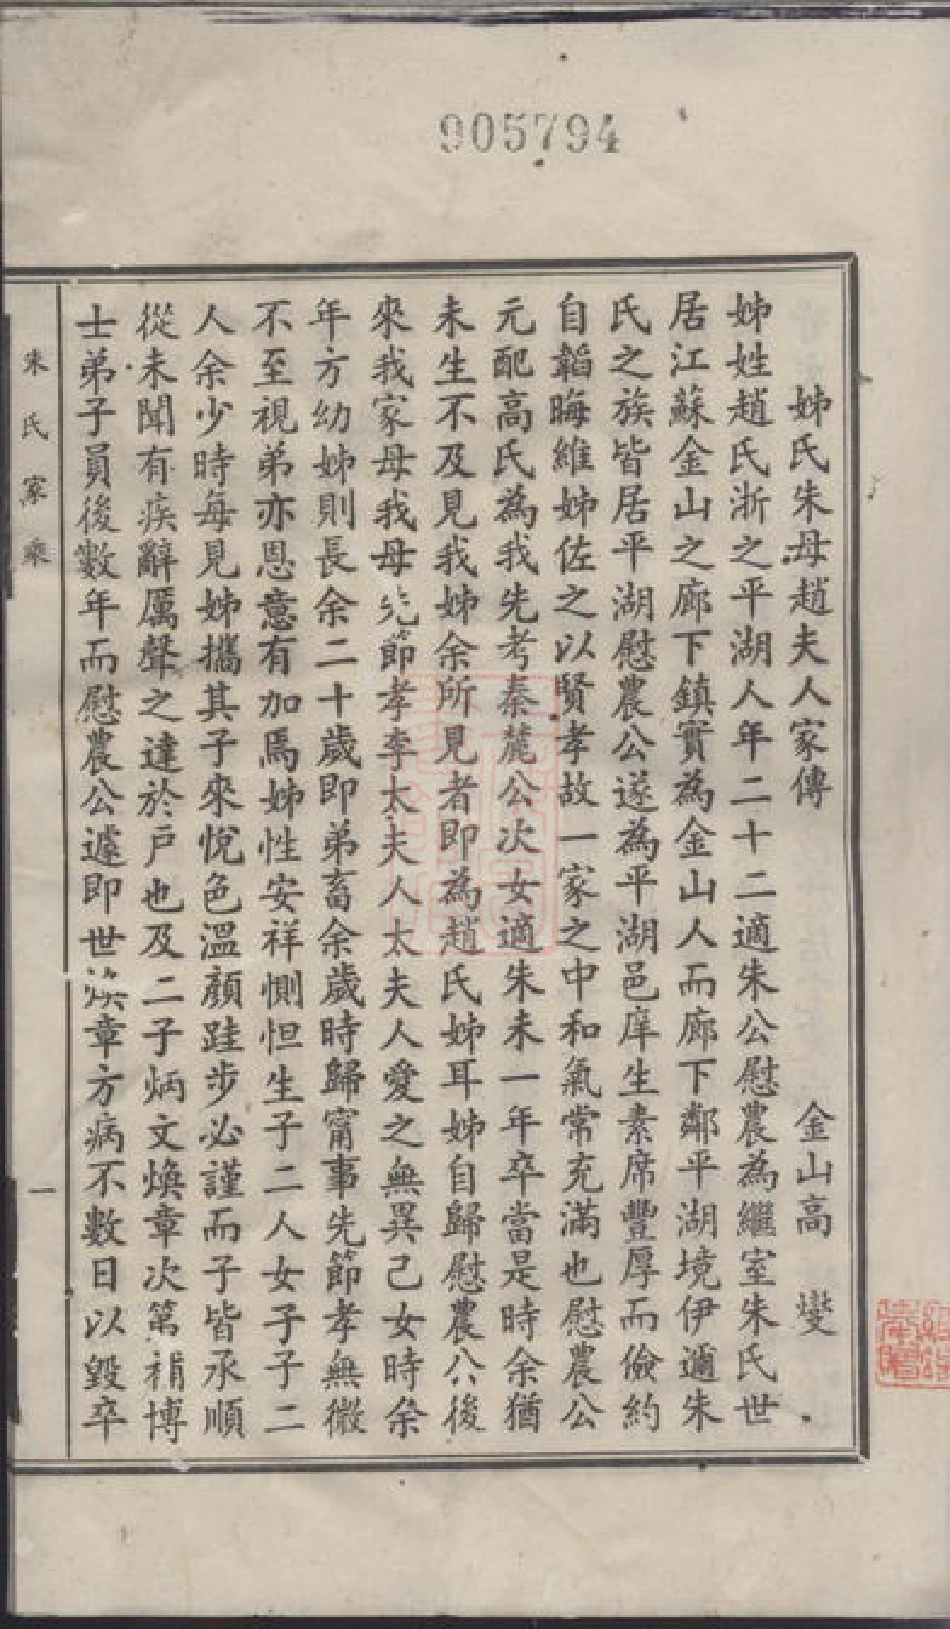 905794
姊氏朱母趙夫人家傳 金山高 燮
姊姓趙氏浙之平湖人年二十二適朱公慰農為繼室朱氏世
居江蘇金山之廊下鎮實為金山人而廊下鄰平湖境伊邇朱
氏之族皆居平湖慰農公遂為平湖邑庠生素席豐厚而儉約
自韜晦維姊佐之以賢孝故一家之中和氣常充滿也慰農公
元配高氏為我先考秦麓公次女適朱未一年卒當是時余猶
未生不及見我姊余所見者即為趙氏姊耳姊自歸慰農公後
來我家母我母先節孝李太夫人太夫人愛之無異己女時余
年方幼姊則長余二十歲即弟畜余歲時歸甯事先節孝無微
不至視弟亦恩意有加焉姊性安祥惻怛生子二人女子子二
人余少時每見姊攜其子來悅色溫顏跬步必謹而子皆承順
從未聞有疾辭厲聲之達於戶也及二子炳文煥章次第補博
士弟子員後數年而慰農公遽即世煥章方病不數日以毀卒
朱氏家乘
一